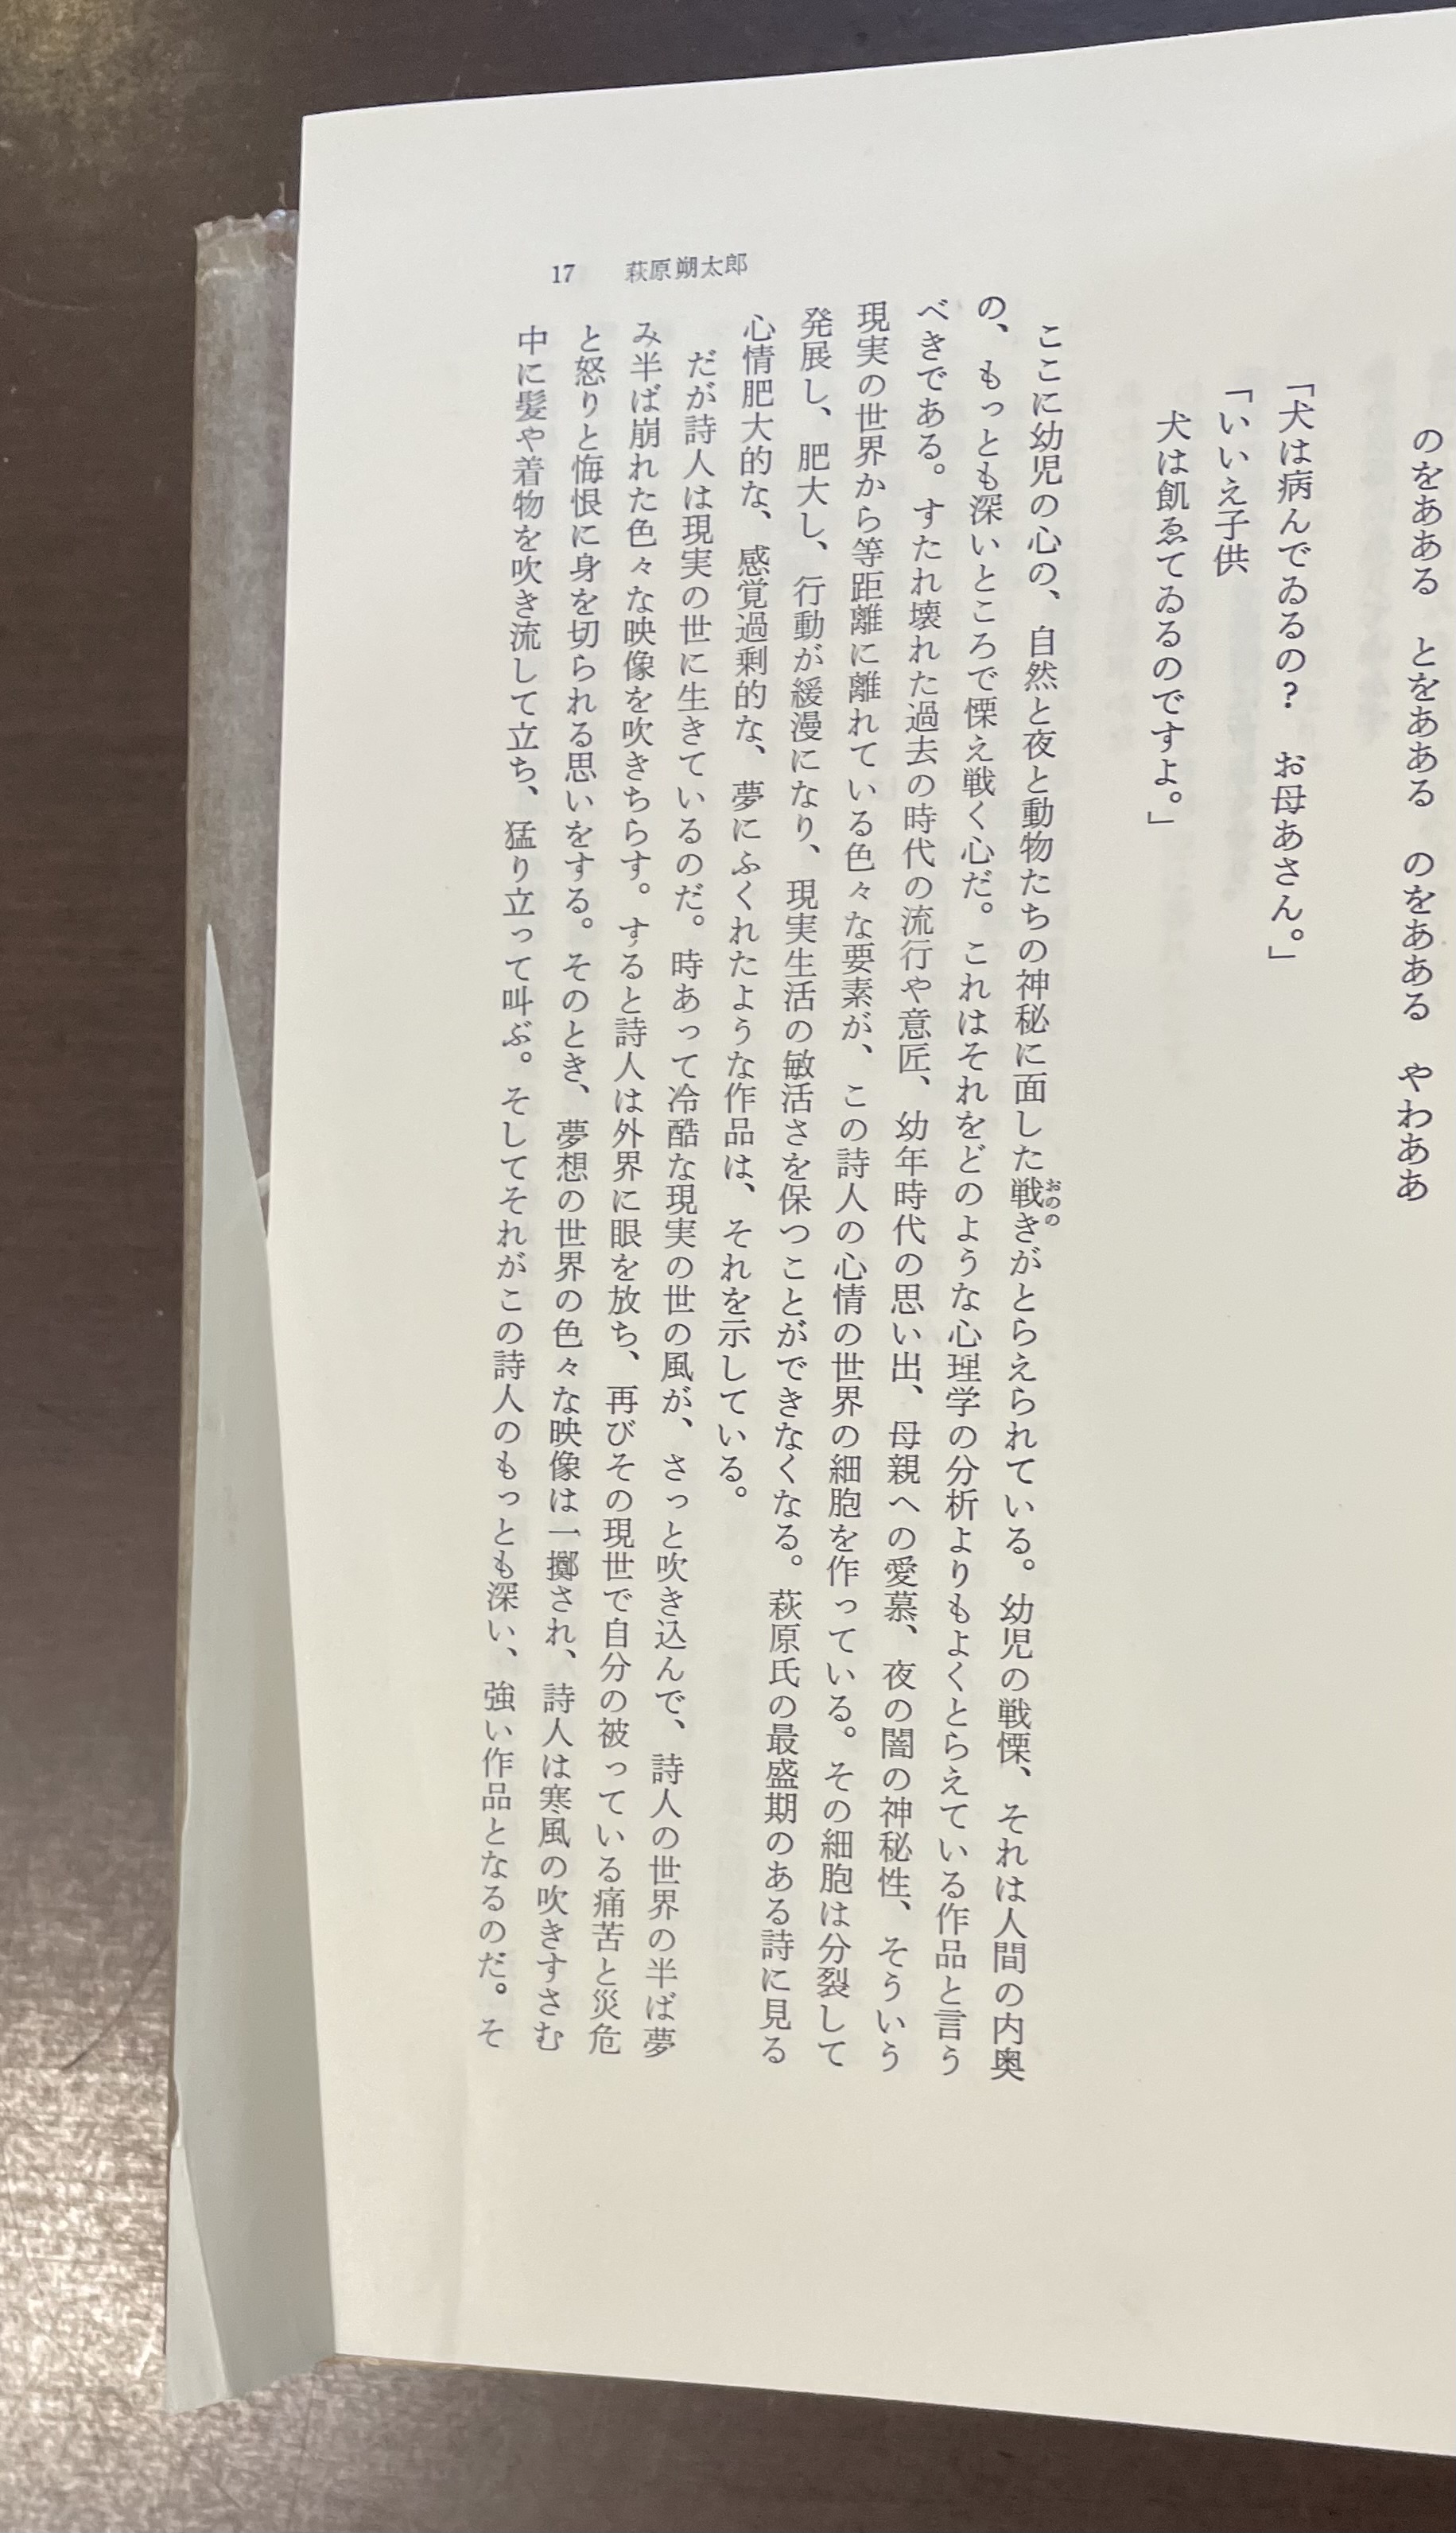 のをあある　とをあある　のをあある　やわああ
「犬は病んでゐるの？　お母あさん。」
「いいえ子供
犬は飢ゑてゐるのですよ。」
ここに幼児の心の、自然と夜と動物たちの神秘に面した戦きがとらえられている。幼児の戦慄、それは人間の内奥
おのの
の、もっとも深いところで慄え戦く心だ。これはそれをどのような心理学の分析よりもよくとらえている作品と言う
べきである。すたれ壊れた過去の時代の流行や意匠、幼年時代の思い出、母親への愛慕、夜の闇の神秘性、そういう
現実の世界から等距離に離れている色々な要素が、この詩人の心情の世界の細胞を作っている。その細胞は分裂して
発展し、肥大し、行動が緩漫になり、現実生活の敏活さを保つことができなくなる。萩原氏の最盛期のある詩に見る
心情肥大的な、感覚過剰的な、夢にふくれたような作品は、それを示している。
だが詩人は現実の世に生きているのだ。時あって冷酷な現実の世の風が、さっと吹き込んで、詩人の世界の半ば夢
み半ば崩れた色々な映像を吹きちらす。すると詩人は外界に眼を放ち、再びその現世で自分の被っている痛苦と災危
と怒りと悔恨に身を切られる思いをする。そのとき、夢想の世界の色々な映像は一擲され、詩人は寒風の吹きすさむ
中に髪や着物を吹き流して立ち、猛り立って叫ぶ。そしてそれがこの詩人のもっとも深い、強い作品となるのだ。そ
17　萩原朔太郎